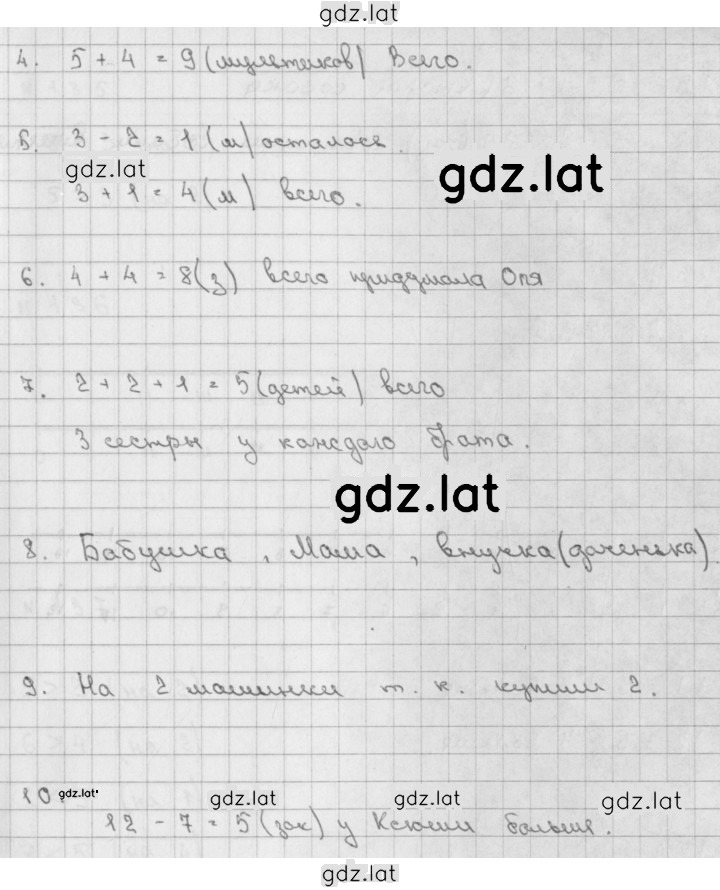 gdz.lat
4. 5 + 4 = 9 (мультиков) Всего.
5. 3 - 2 = 1 (м) осталось.
gdz.lat
gdz.lat
3 + 1 = 4 (м) всего.
6. 4 + 4 = 8 (з) всего придумала Оля
7. 2 + 2 + 1 = 5 (детей) всего
3 сестры у каждого брата.
gdz.lat
8. Бабушка, Мама, внучка (доченька).
9. На 2 машинки т. к. купили 2.
10 gdz.lat
gdz.lat gdz.lat gdz.lat
12 - 7 = 5 (зак) у Ксюши больше.
gdz.lat